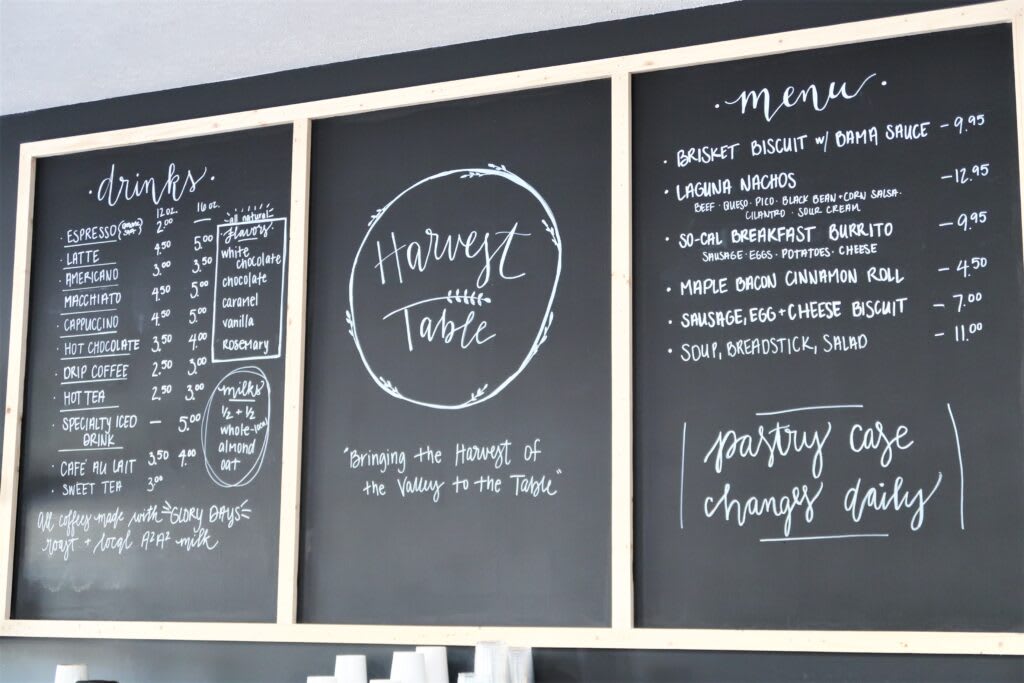 ·drinks·
12 oz. 16 oz.
· ESPRESSO 2.00 —
· LATTE 4.50 5.00
· AMERICANO 3.00 3.50
· MACCHIATO 4.50 5.00
· CAPPUCCINO 4.50 5.00
· HOT CHOCOLATE 3.50 4.00
· DRIP COFFEE 2.50 3.00
· HOT TEA 2.50 3.00
· SPECIALTY ICED — 5.00
DRINK
· CAFE' AU LAIT 3.50 4.00
· SWEET TEA 3.00
All coffees made with GLORY DAYS
roast + local A²A² milk
all natural
flavors:
white
chocolate
chocolate
caramel
vanilla
rosemary
milks
½ + ½
whole-local
almond
oat
Harvest
Table
"Bringing the Harvest of
the Valley to the Table"
·menu·
· BRISKET BISCUIT w/ BAMA SAUCE - 9.95
· LAGUNA NACHOS - 12.95
BEEF · QUESO · PICO · BLACK BEAN + CORN SALSA ·
CILANTRO · SOUR CREAM
· SO-CAL BREAKFAST BURRITO - 9.95
SAUSAGE · EGGS · POTATOES · CHEESE
· MAPLE BACON CINNAMON ROLL - 4.50
· SAUSAGE, EGG + CHEESE BISCUIT - 7.00
· SOUP, BREADSTICK, SALAD - 11.00
pastry case
changes daily